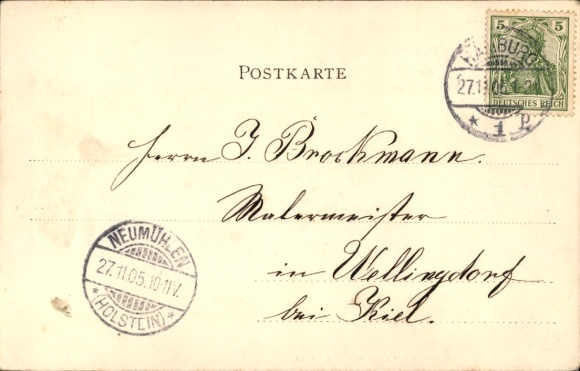 5 5
DEUTSCHES REICH
HAMBURG
27.11.05.
* 1 P
POSTKARTE
Herrn J. Brockmann.
Malermeister
in Wellingdorf
bei Kiel.
NEUMÜHLEN
27.11.05.10-11V.
*(HOLSTEIN)*